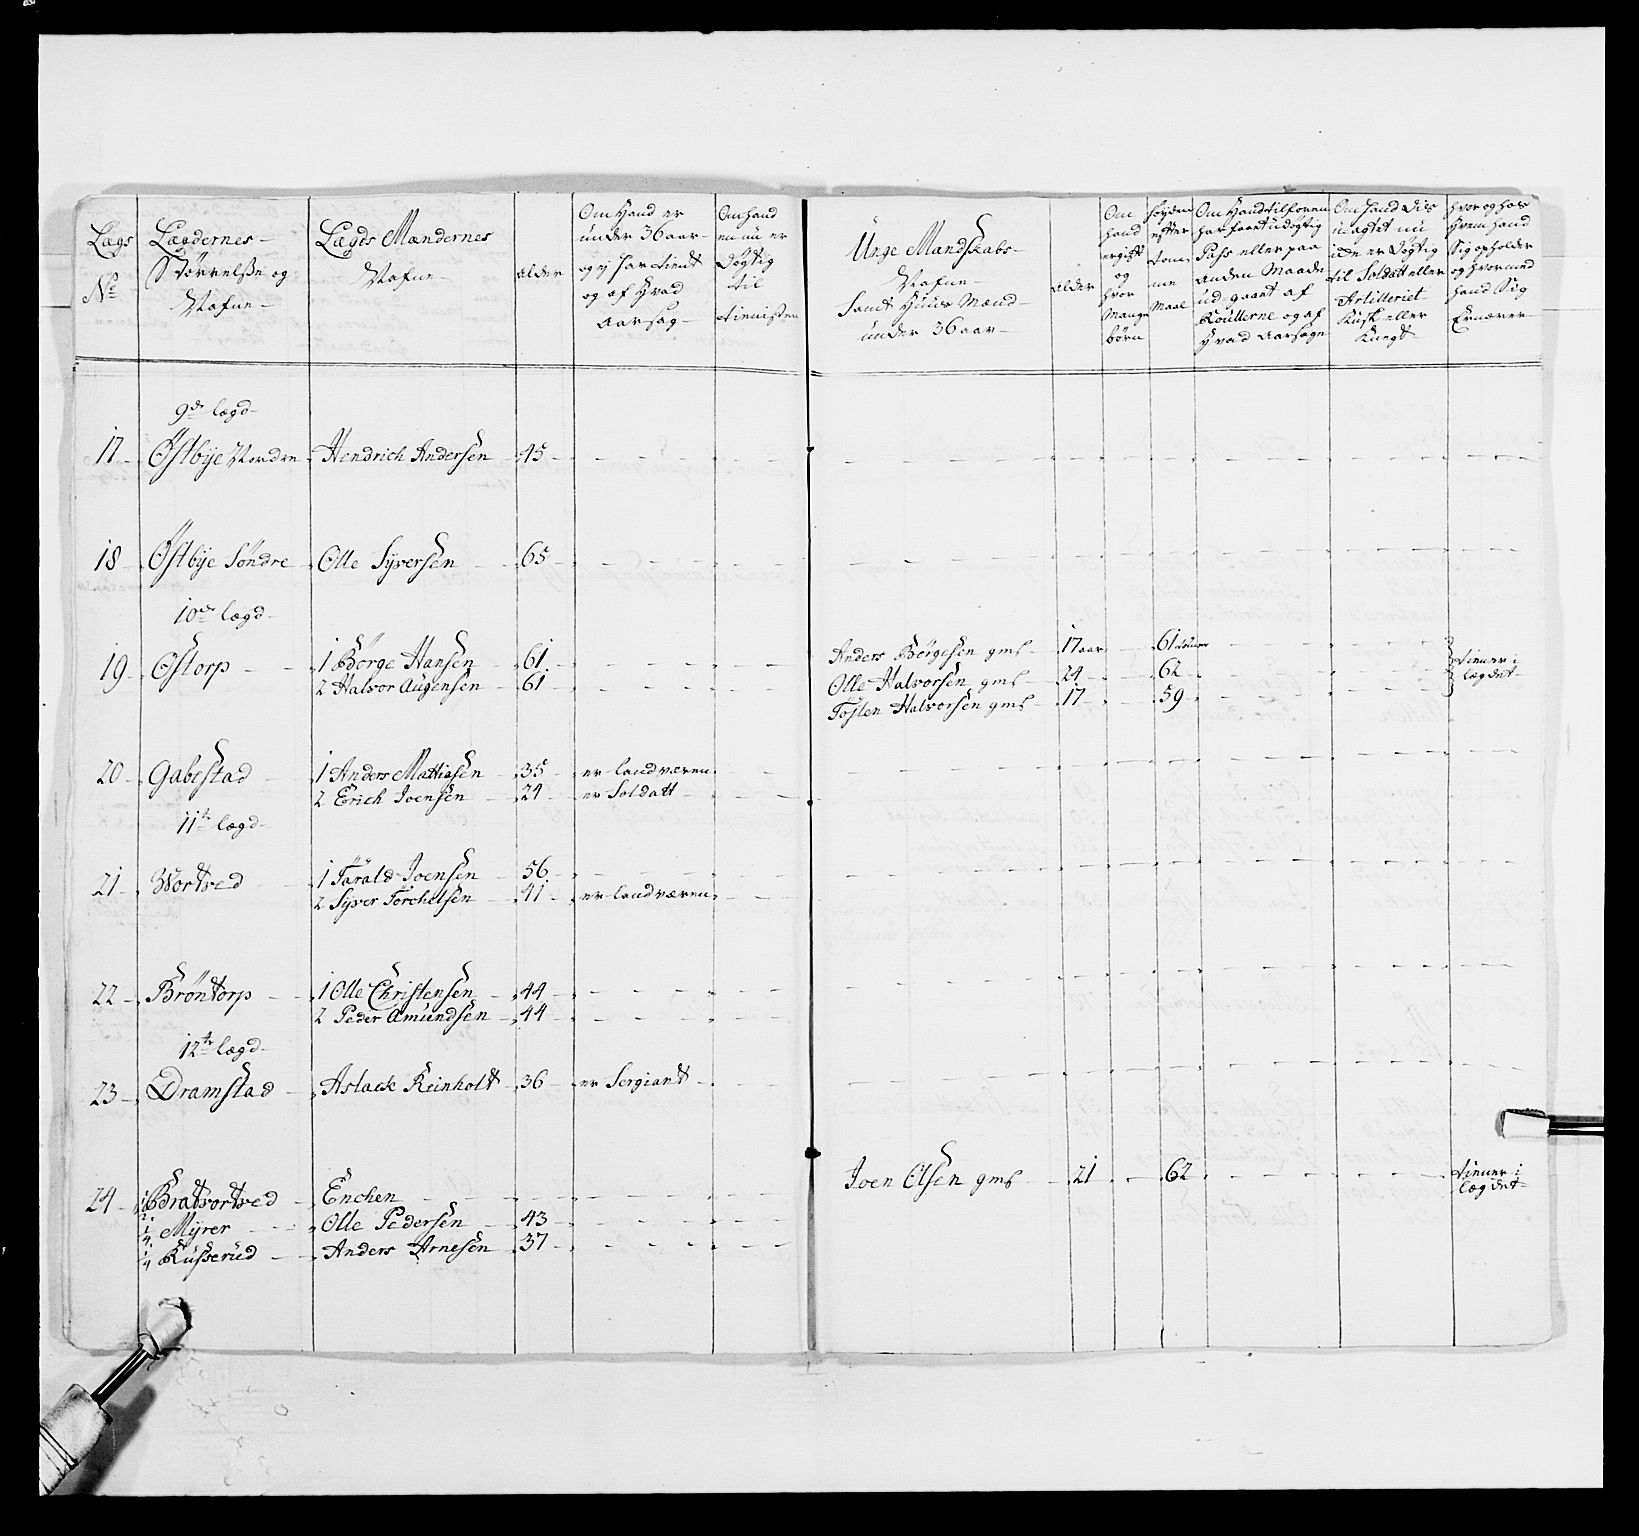 Lægs
No
Lægdernes
Størrelße og
Nafne
Lægds Mændernes
Nafne
alder
Om Hand er
under 36 aar
og ej har tient
og af Hvad
Aarsag
Om hand
en nu er
Døgtig
til
tienisten
Unge Mandskabs
Nafne
samt Huus Mænd
under 36 aar
alder
Om
hand
ergift
og
hvor
Mange
børn
høyden
efter
tom
me
Maal
Om Hand tilforen
har faaet udøgtig
Pass eller paa
anden Maade
ud-gaaet af
Roullerne og af
Hvad aarsage
Om hand Dis
uagtet nu
er Døgtig
til Soldatt eller
Artilleriet
Kusk eller
Knegt
Hvor og hos
Hvem hand
Sig opholder
og hvormed
hand Sig
Ernærer
9de lægd
17 Östbÿe Nordre Hendrich Andersen 45
18 Östbÿe Söndre Olle Sÿversen 65
10de lægd
19 Ostorp 1 Börge Hansen 61 Anders Børgesen gmb 17 aar 61 tomer
2 Halvor Augensen 61 Olle Halvorsen gmb 24 62 tiener i
lægdet
Töjlen Halvorsen gmb 17 59
20 Gabestad 1 Anders Mattiasen 35 er landværen
2 Erich Joensen 24 er Soldatt
11te lægd
21 Wortved 1 Tarald Joensen 56
2 Sÿver Törchelsen 41 er landværen
22 Bröntorp 1 Olle Christensen 44
2 Peder Amundsen 44
12te lægd
23 Dramstad Aslack Reinholt 36 er Sergiant
24 1/2 Bratvortved Enchen Joen Olsen gmb 21 62 tiener i
lægdet
1/4 Mÿrer Olle Pedersen 43
1/4 Kusserud Anders Arnesen 37